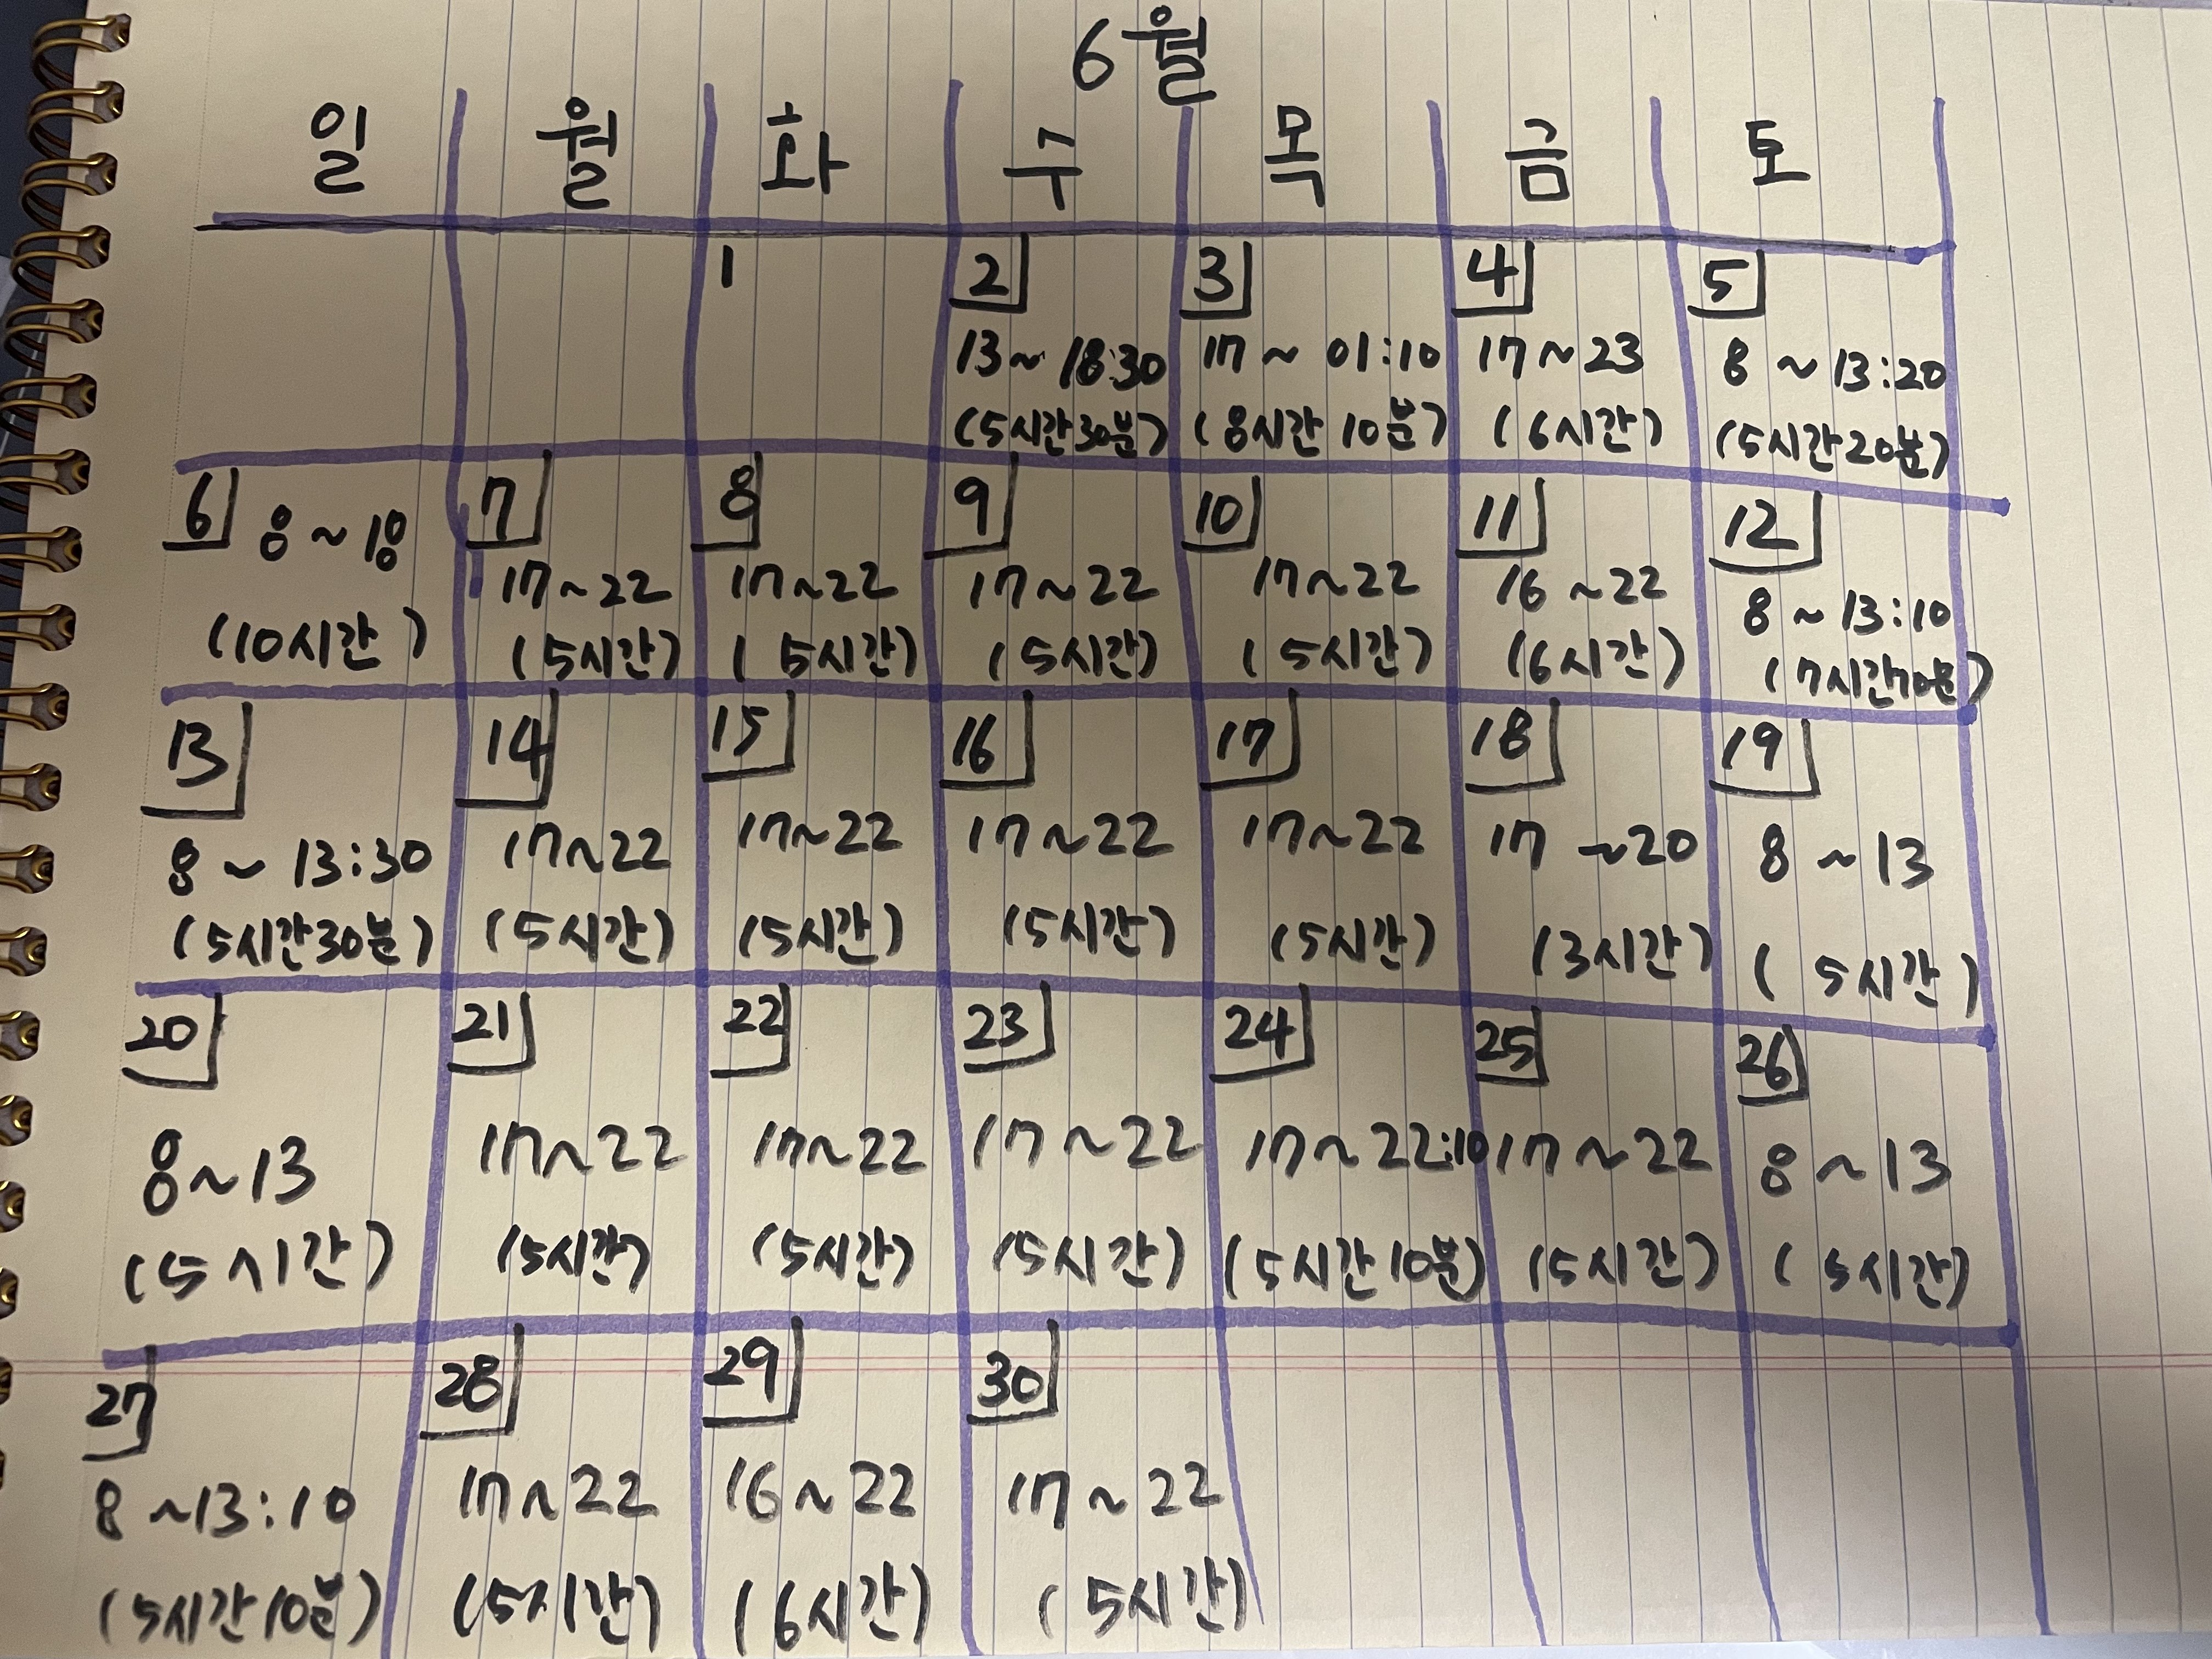 6월
일 월 화 수 목 금 토
1 2 3 4 5
13~18:30 17~01:10 17~23 8~13:20
(5시간30분) (8시간 10분) (6시간) (5시간20분)
6 7 8 9 10 11 12
8~18 17~22 17~22 17~22 17~22 16~22 8~13:10
(10시간) (5시간) (5시간) (5시간) (5시간) (6시간) (7시간10분)
13 14 15 16 17 18 19
8~13:30 17~22 17~22 17~22 17~22 17~20 8~13
(5시간30분) (5시간) (5시간) (5시간) (5시간) (3시간) (5시간)
20 21 22 23 24 25 26
8~13 17~22 17~22 17~22 17~22:10 17~22 8~13
(5시간) (5시간) (5시간) (5시간) (5시간10분) (5시간) (5시간)
27 28 29 30
8~13:10 17~22 16~22 17~22
(5시간10분) (5시간) (6시간) (5시간)